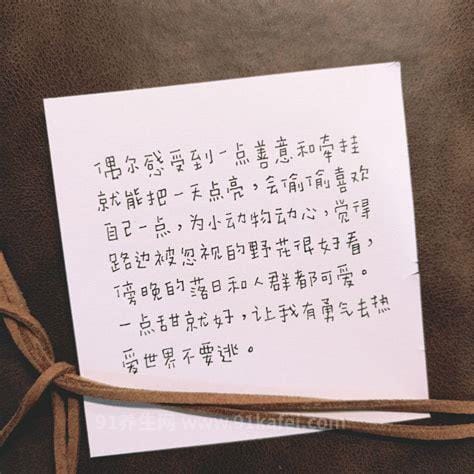 偶尔感受到一点善意和牵挂
就能把一天点亮，会偷偷喜欢
自己一点，为小动物动心，觉得
路边被忽视的野花很好看，
傍晚的落日和人群都可爱。
一点甜就好，让我有勇气去热
爱世界不要逃。
91养生网 www.91kafei.com